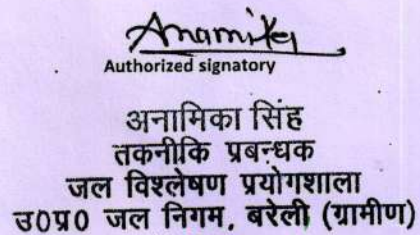 Anamika
Authorized signatory
अनामिका सिंह
तकनीकि प्रबन्धक
जल विश्लेषण प्रयोगशाला
उ0प्र0 जल निगम, बरेली (ग्रामीण)